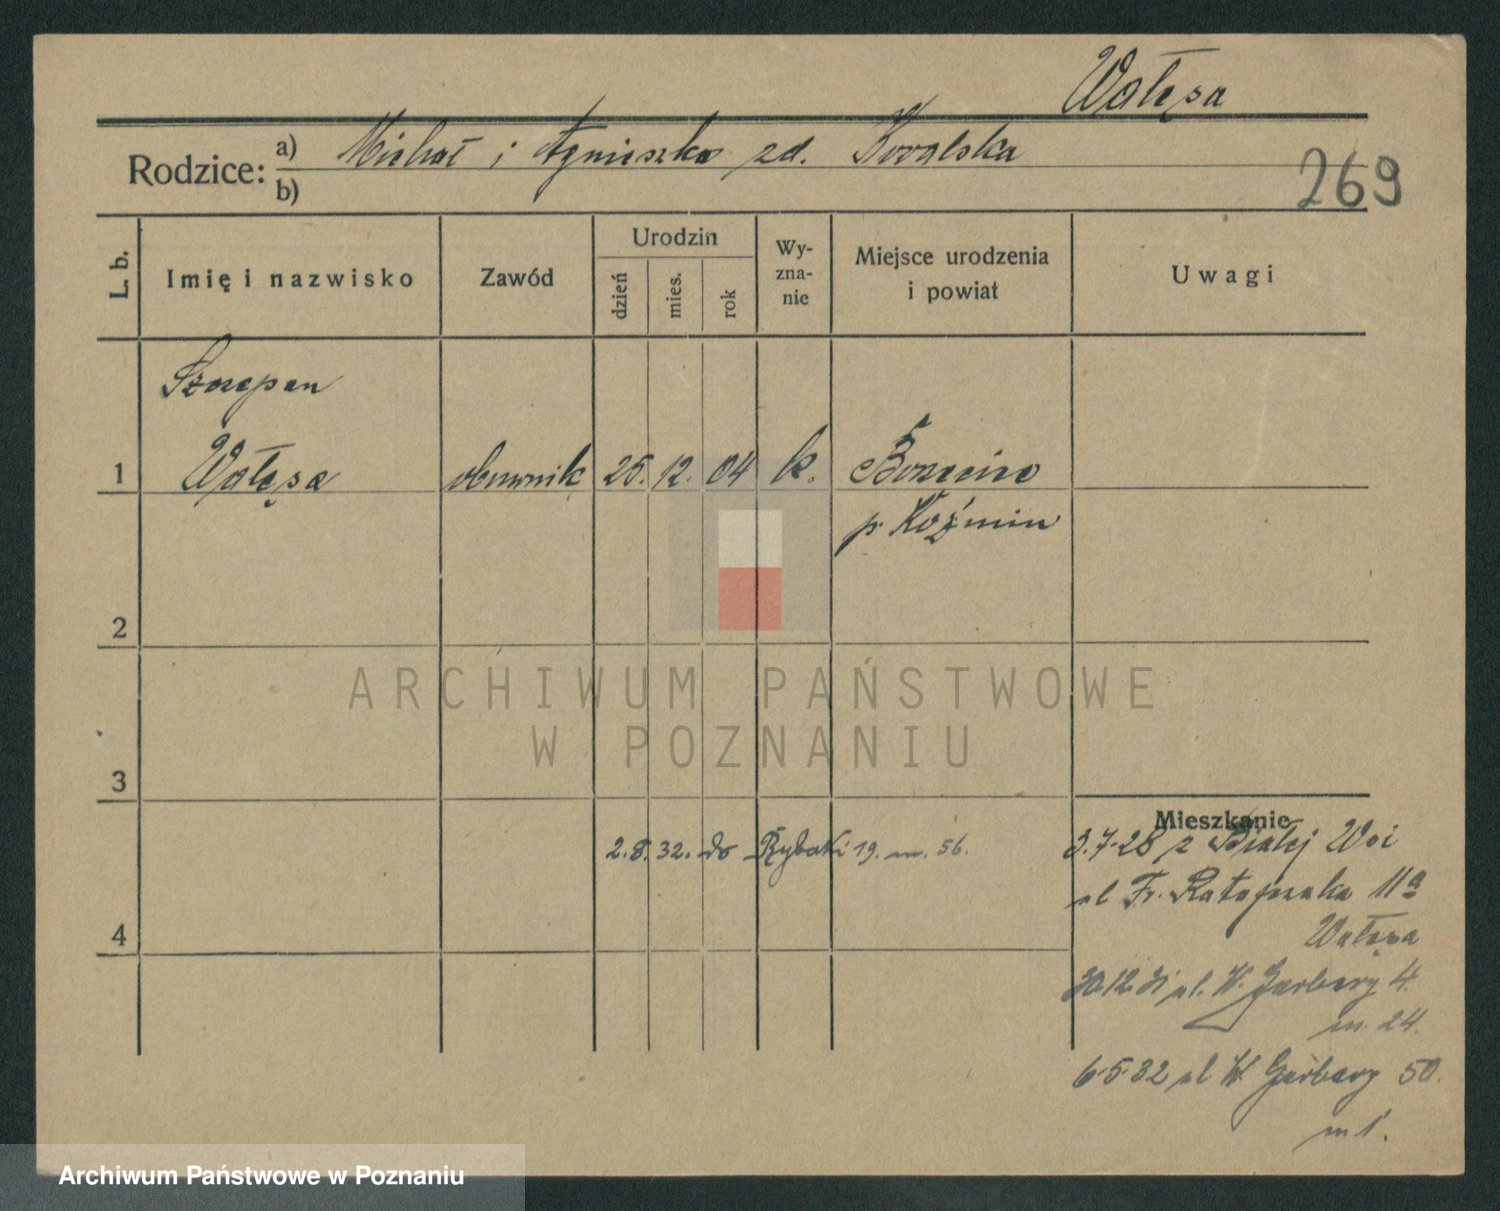 Wałęsa
Rodzice: a) Michał i Agnieszka zd. Kowalska
b)
269
L. b.
Imię i nazwisko
Zawód
Urodzin
dzień
mies.
rok
Wy-
zna-
nie
Miejsce urodzenia
i powiat
Uwagi
Szczepan
1 Wałęsa obuwnik 25. 12. 04 k.
p. Koźmin
2
ARCHIWUM PAŃSTWOWE
W POZNANIU
3
Mieszkanie
2.8.32. do Rybaki 19. m. 56.
3.7.28 z Białej Woi
ul Fr. Ratajczaka 11a
Wałęsa
4
30.12.31 ul. W. Garbary 4.
m. 24.
6.5.32 ul W. Garbary 50.
m 1.
Archiwum Państwowe w Poznaniu